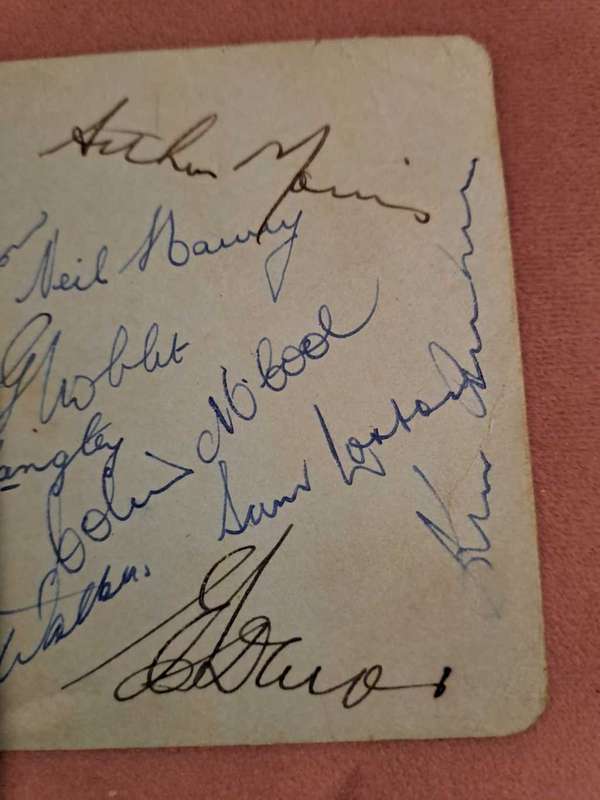 Arthur Morris
Neil Harvey
G Noblet
angley
Colin McCool
Sam Loxton
Walker.
Ken